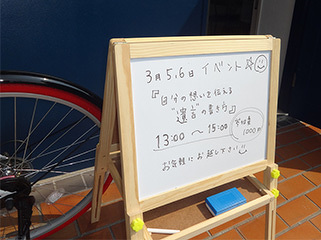 3月5,6日 イベント
『自分の想いを伝える
"遺言"の書き方』
13:00 〜 15:00
参加費
1000円
お気軽にお越し下さい